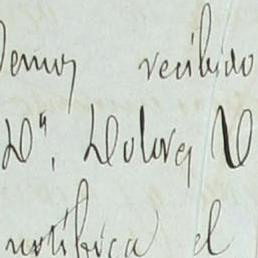 Hemos recibido
Dª. Dolores V
notifica el